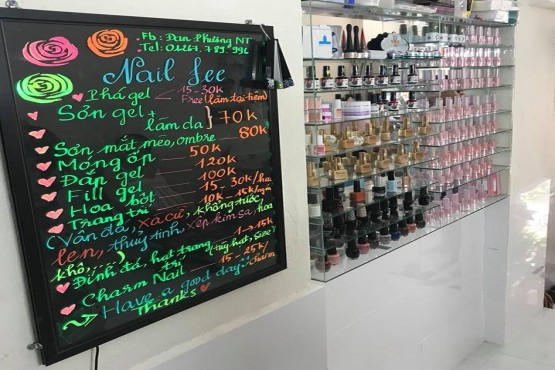 Fb: Đan Phường NT
Tel: 01267.789.996
Nail Lee
Phá gel 15-30k
Free (làm tại tiệm)
Sơn gel + làm da } 70k
Sơn mắt mèo, ombre 80k
Móng úp 50k
Đắp gel 120k
Fill gel 100k
Hoa bột 15-30k/
Trang trí 10k-15k/
(Vân đá, xà cừ, không tước,
len, thuỷ tinh, xếp kim sa, hoa
khô,...)
Đính đá, hạt trang trí 1→15k
(tuỳ hạt, size)
Charm Nail 15-25k/charm
Have a good day
Thanks